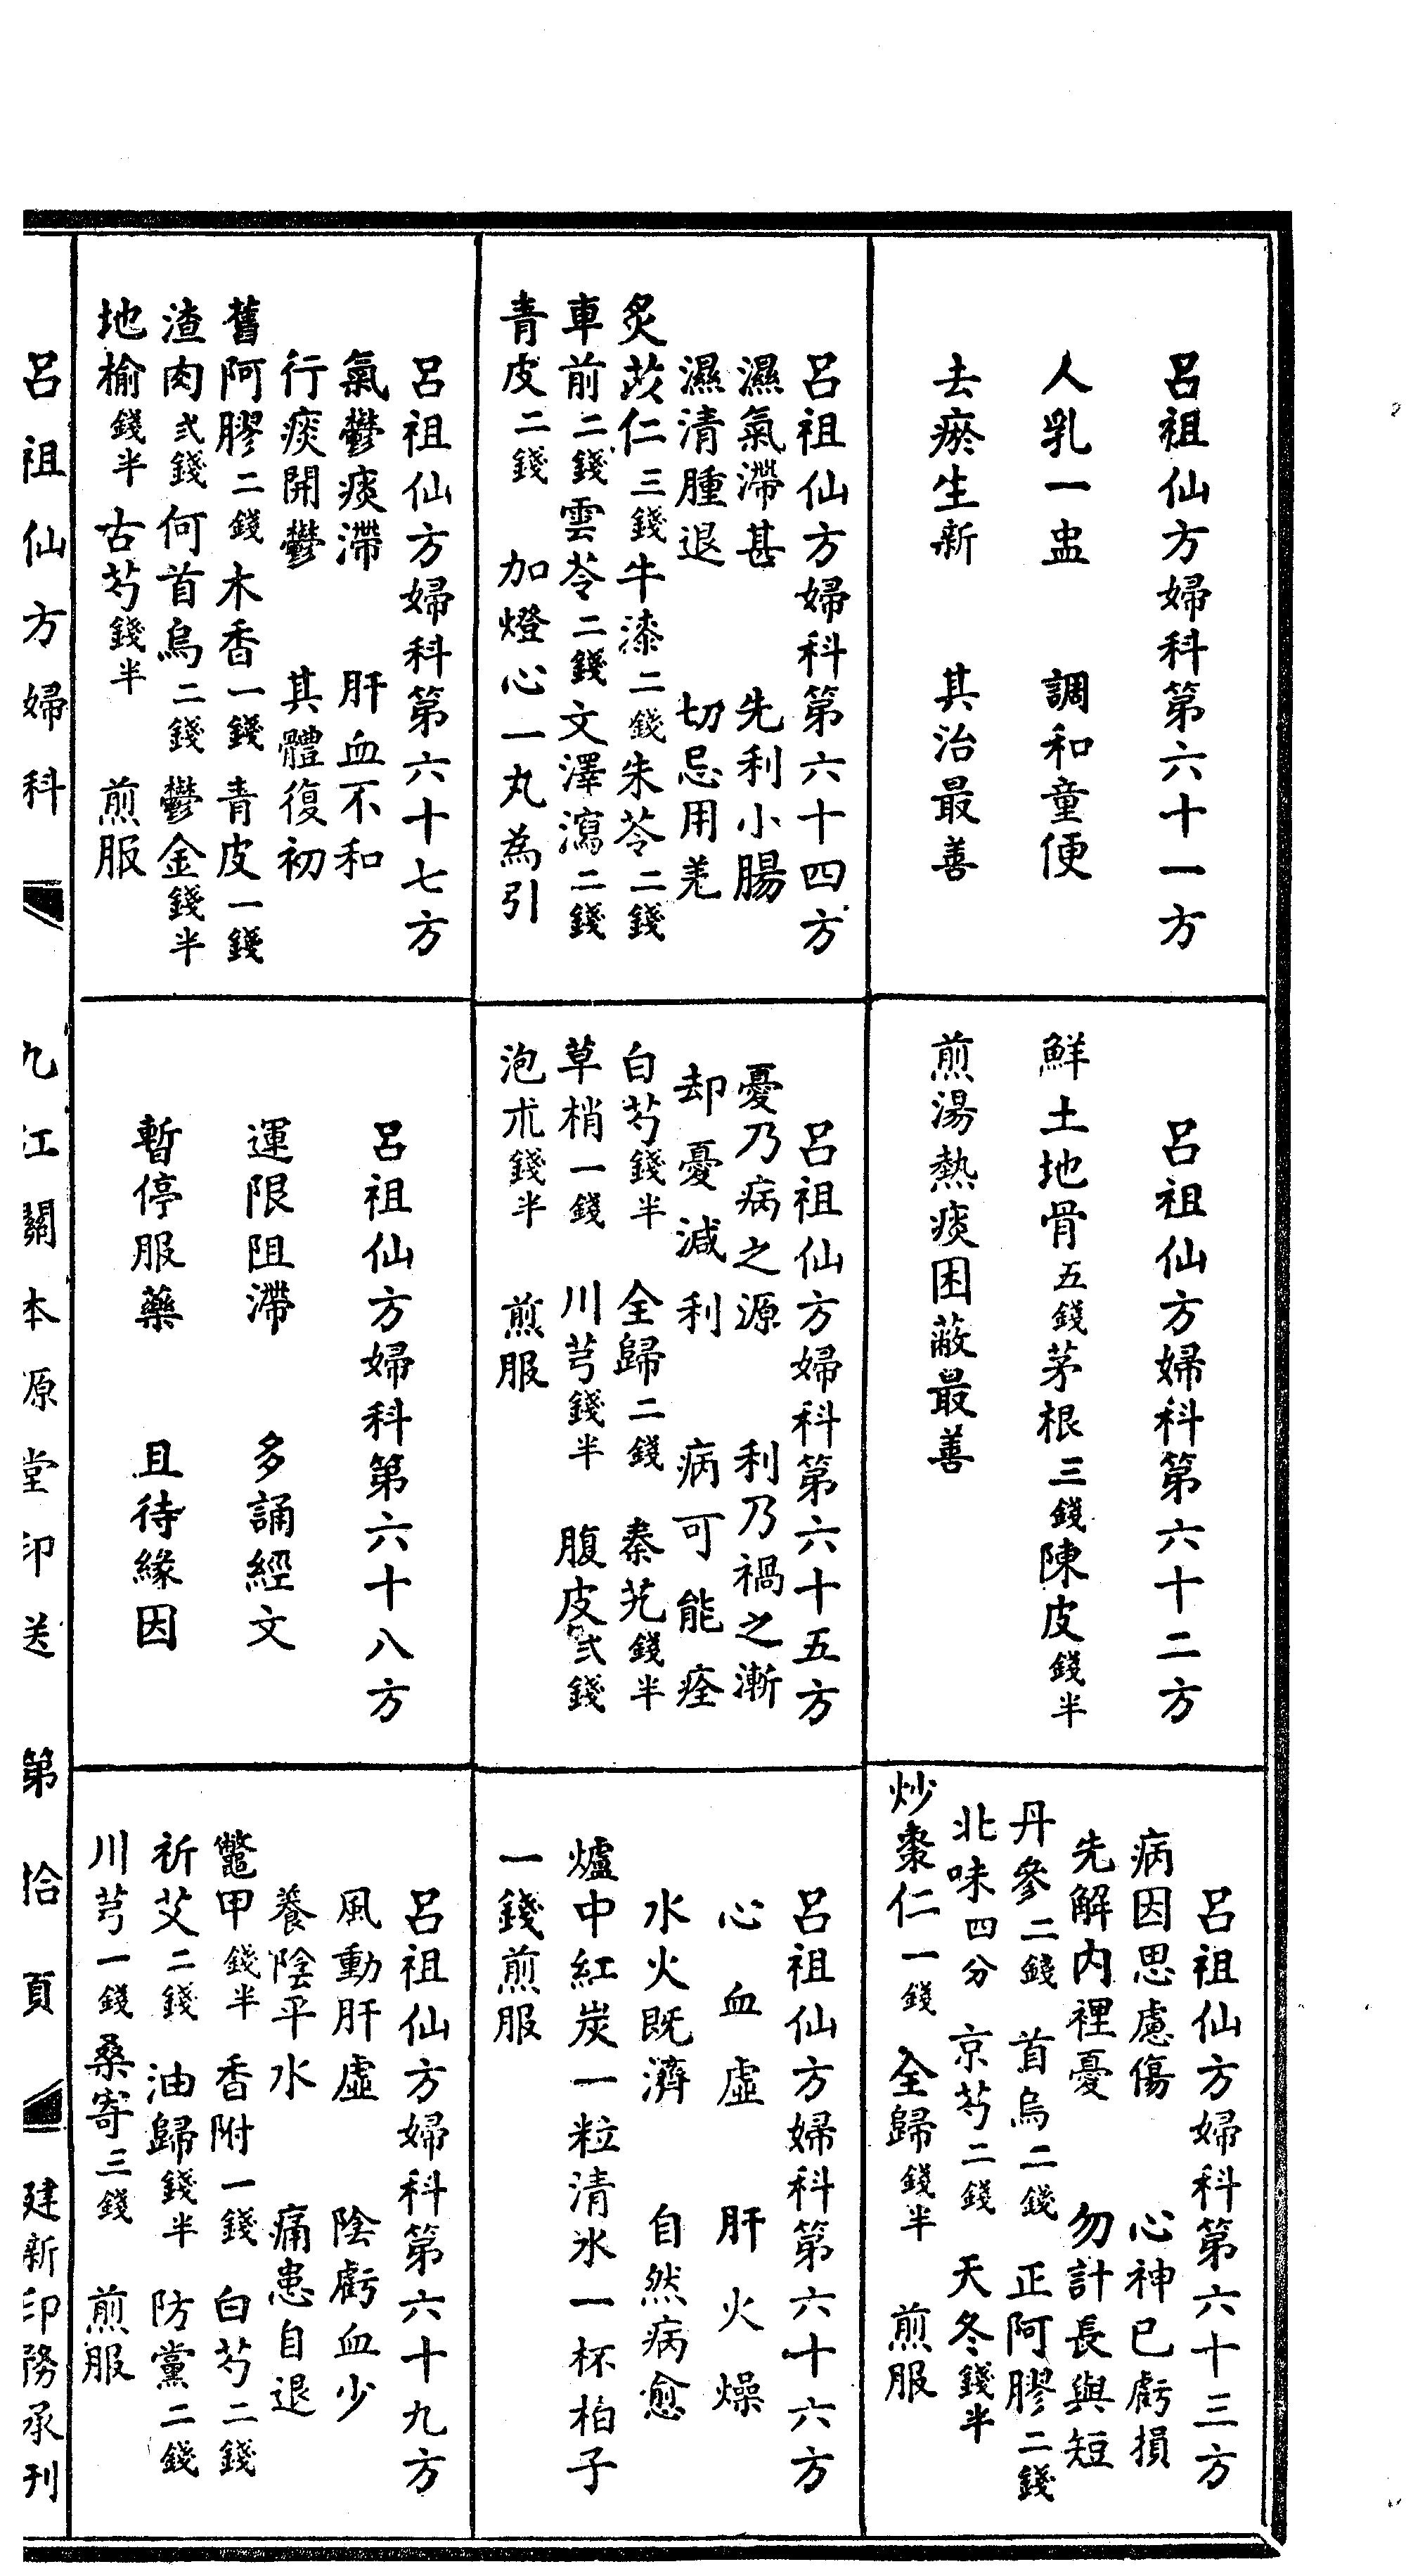 呂祖仙方婦科第六十一方
人乳一盅　調和童便
去瘀生新　其治最善
呂祖仙方婦科第六十二方
鮮土地骨五錢茅根三錢陳皮錢半
煎湯熱痰困蔽最善
呂祖仙方婦科第六十三方
病因思慮傷　心神已虧損
先解内裡憂　勿計長與短
丹參二錢　首烏二錢　正阿膠二錢
北味四分　京芍二錢　天冬錢半
炒棗仁一錢　全歸錢半　煎服
呂祖仙方婦科第六十四方
濕氣滯甚　先利小腸
濕清腫退　切忌用羌
炙苡仁三錢牛漆二錢朱苓二錢
車前二錢雲苓二錢文澤瀉二錢
青皮二錢　加燈心一丸為引
呂祖仙方婦科第六十五方
憂乃病之源　利乃禍之漸
却憂減利　病可能痊
白芍錢半　全歸二錢　秦艽錢半
草梢一錢　川芎錢半　腹皮弍錢
泡朮錢半　煎服
呂祖仙方婦科第六十六方
心血虛　肝火燥
水火既濟　自然病愈
爐中紅炭一粒清水一杯柏子
一錢煎服
呂祖仙方婦科第六十七方
氣鬱痰滯　肝血不和
行痰開鬱　其體復初
舊阿膠二錢木香一錢青皮一錢
渣肉弍錢何首烏二錢鬱金錢半
地榆錢半古芍錢半　煎服
呂祖仙方婦科第六十八方
運限阻滯　多誦經文
暫停服藥　且待緣因
呂祖仙方婦科第六十九方
風動肝虛　陰虧血少
養陰平水　痛患自退
鱉甲錢半　香附一錢　白芍二錢
祈艾二錢　油歸錢半　防黨二錢
川芎一錢桑寄三錢　煎服
呂祖仙方婦科　九江關本源堂印送　第拾頁　建新印務承刊